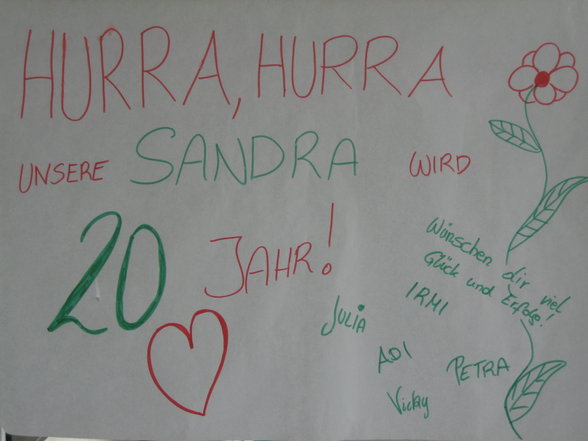 HURRA, HURRA
UNSERE SANDRA WIRD
20 JAHR!
Wünschen dir viel
Glück und Erfolg!
IRMI
JULIA
ADI
PETRA
Vicky